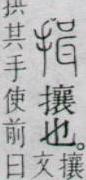 揖攘也。
攘
文
拱其手使前曰